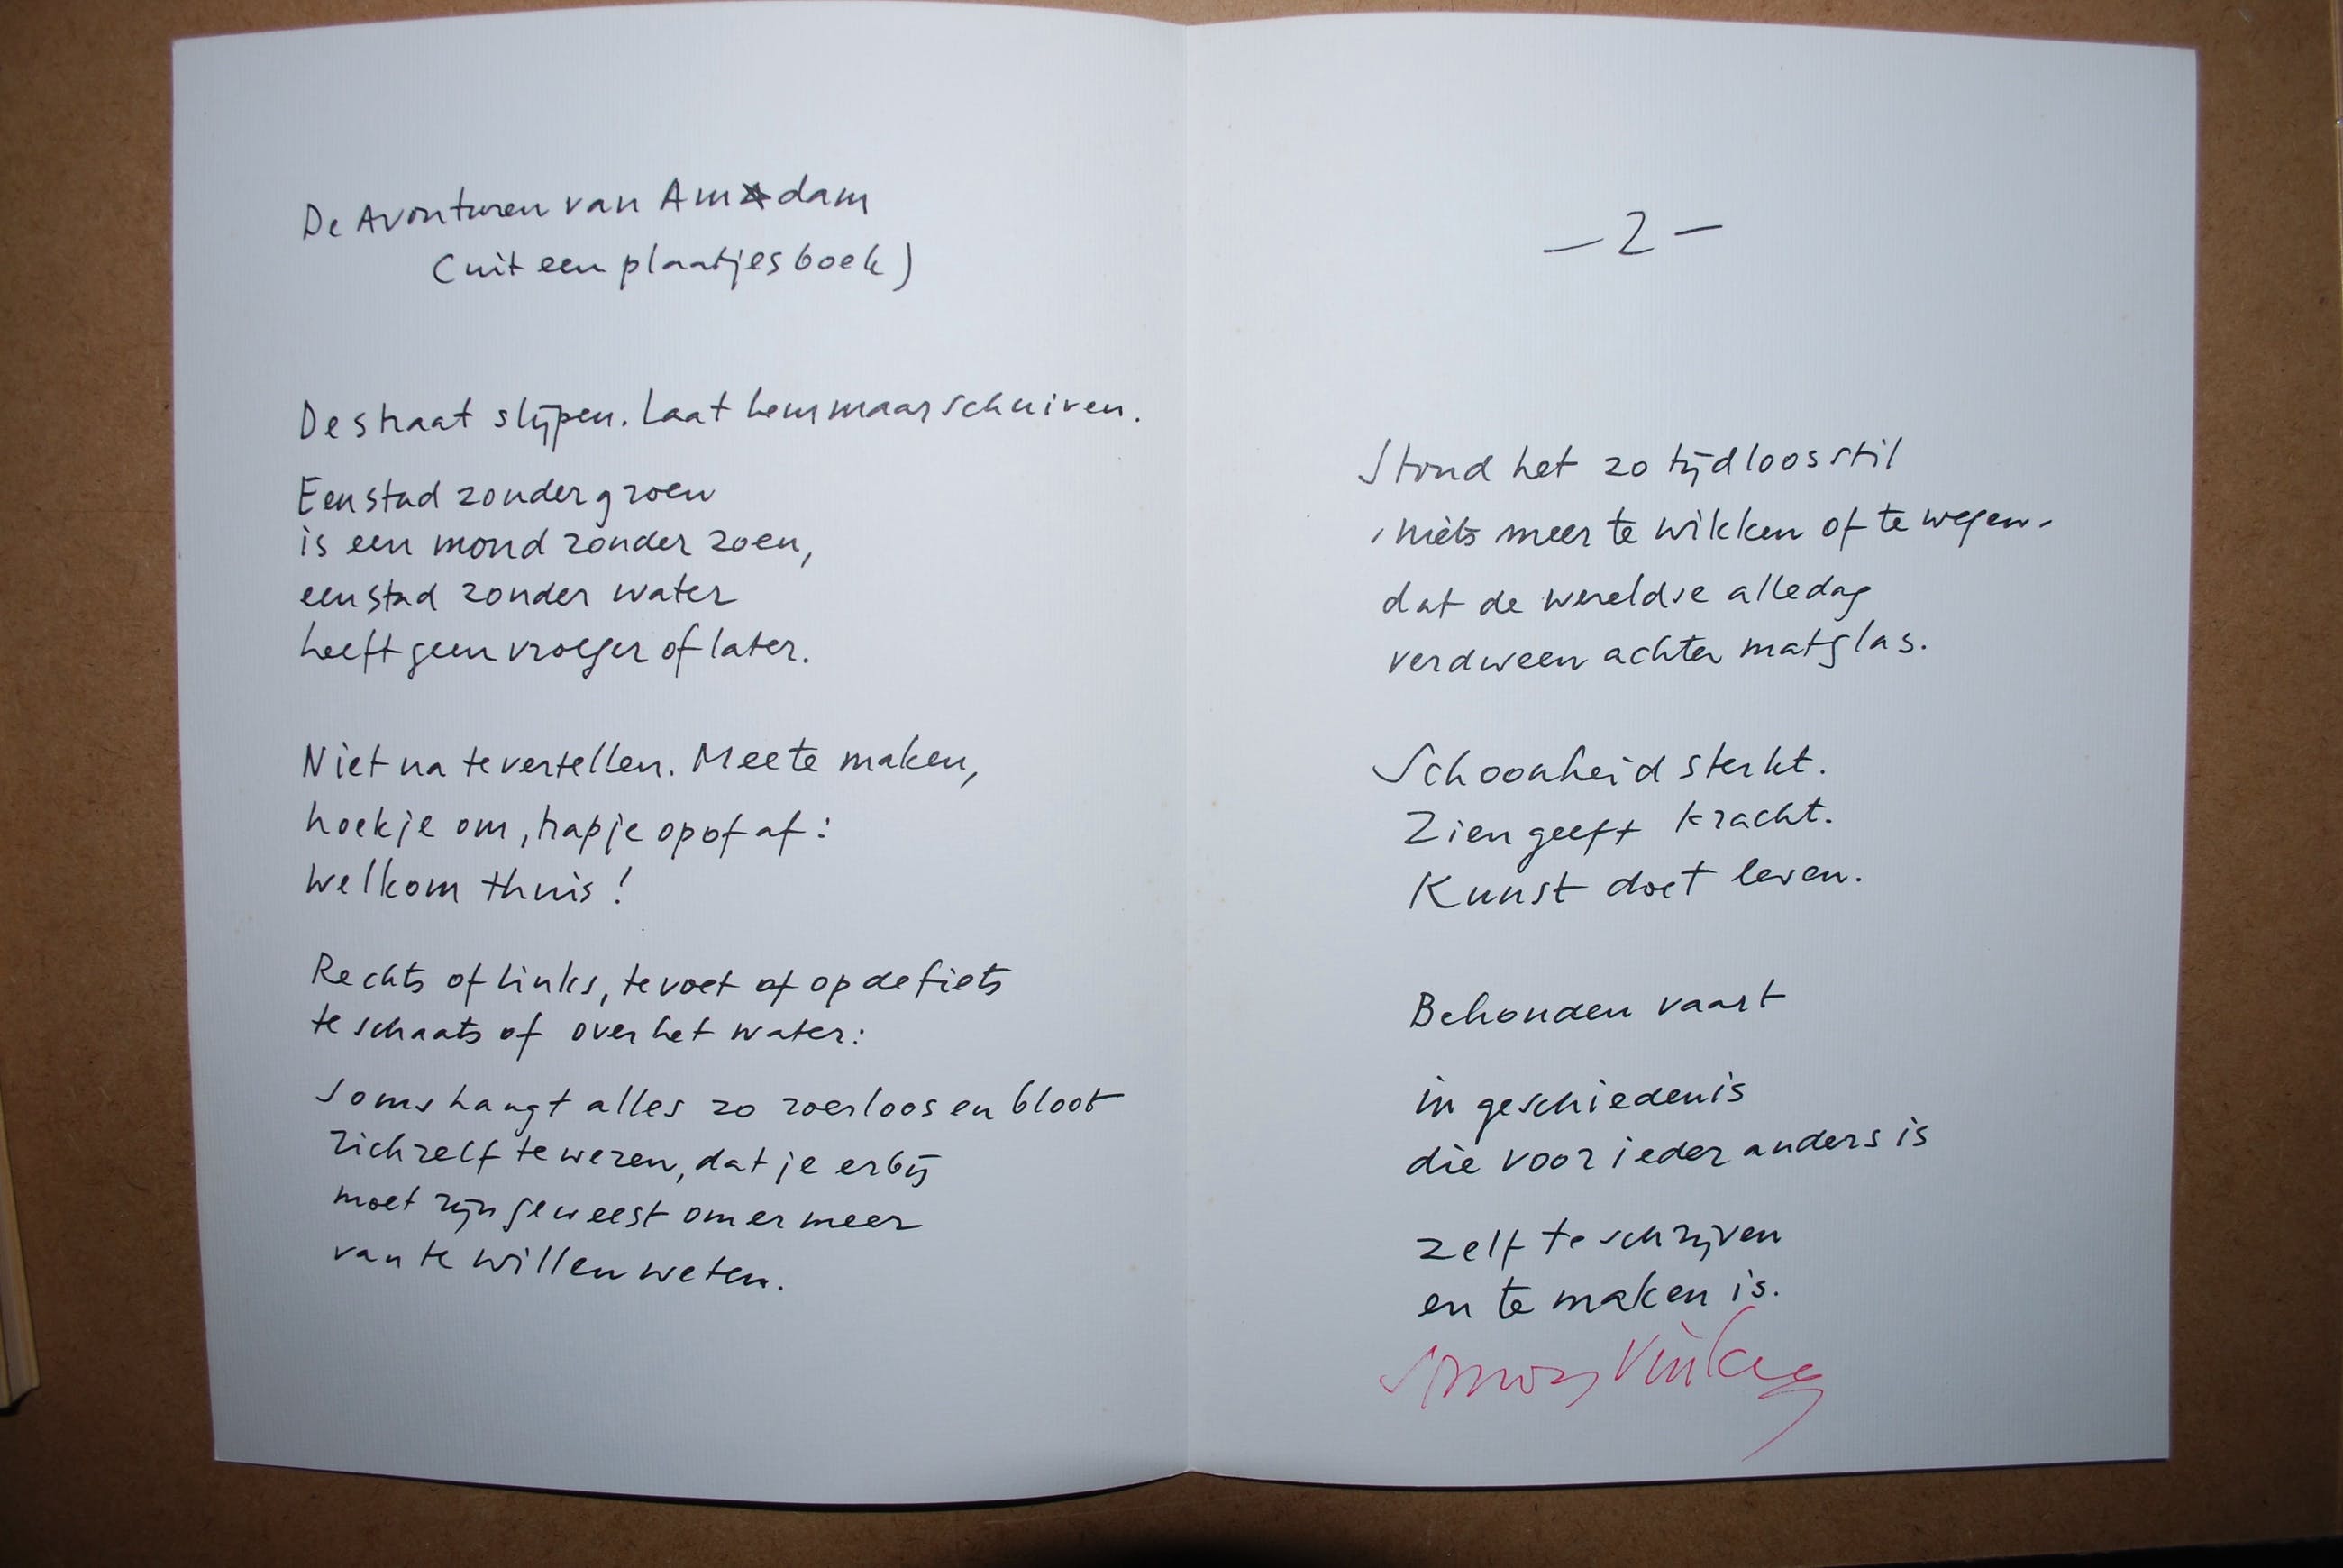 De Avonturen van Am☆dam
(uit een plaatjesboek)
De straat slijpen. Laat hem maar schuiven.
Een stad zonder groen
is een mond zonder zoen,
een stad zonder water
heeft geen vroeger of later.
Niet na te vertellen. Mee te maken,
hoekje om, trapje op of af:
Welkom thuis!
Rechts of links, te voet of op de fiets
te schaats of over het water:
Soms hangt alles zo roerloos en bloot
zichzelf te wezen, dat je erbij
moet zijn geweest om er meer
van te willen weten.
— 2 —
Stond het zo tijdloos stil
, niets meer te wikken of te wegen -
dat de wereldse alledag
verdween achter matglas.
Schoonheid sterkt.
Zien geeft kracht.
Kunst doet leven.
Behouden vaart
in geschiedenis
die voor ieder anders is
zelf te schrijven
en te maken is.
Simon Vinkenoog